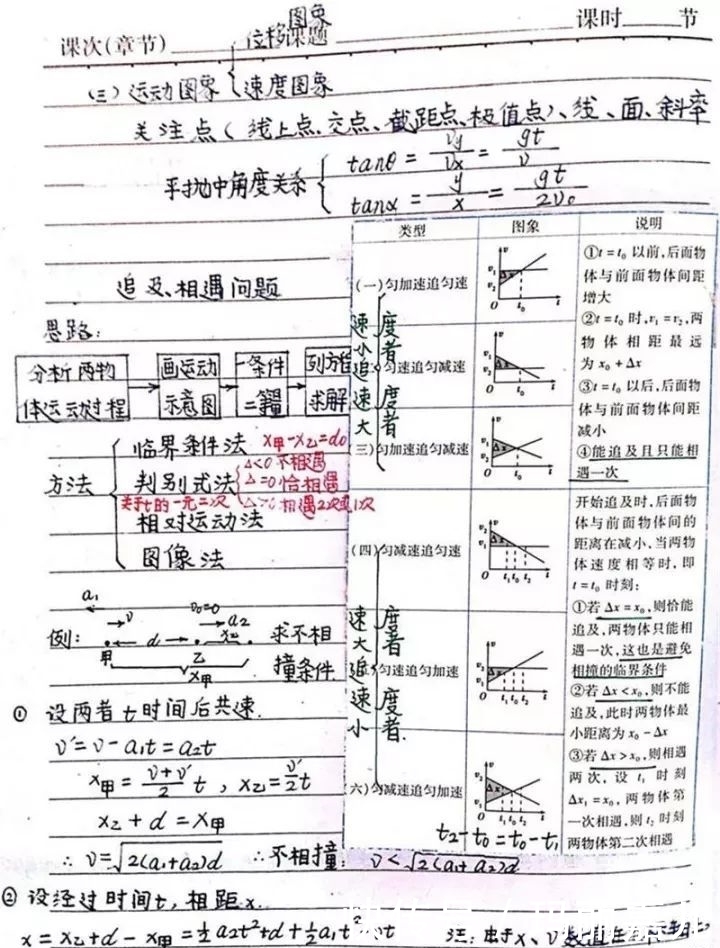 图象
课次(章节) 位移课题 课时 节
(三)运动图象 速度图象
关注点(线上点、交点、截距点、极值点)、线、面、斜率
平抛中角度关系
tanθ = vy/vx = gt/v
tanα = y/x = gt/2v₀
追及、相遇问题
思路:
分析两物体运动过程
画运动示意图
一条件二
列方程求解
方法
临界条件法 x甲-x乙=d₀
判别式法
Δ<0 不相遇
Δ=0 恰相遇
Δ>0 相遇2次或1次
关于t的一元二次
相对运动法
图像法
a₁ v v₀=0 a₂
例: d x乙 求不相
甲 乙 撞条件
x甲
① 设两者t时间后共速.
v'=v-a₁t=a₂t
x甲=(v+v')/2 t, x乙=v'/2 t
x乙+d=x甲
∴ v=√2(a₁+a₂)d ∴不相撞: v<√2(a₁+a₂)d
② 设经过时间t,相距x.
x=x乙+d-x甲=½a₂t²+d+½a₁t²-vt 注:由于x、v
类型 图象 说明
(一)匀加速追匀速
v v₁ v₂ Δx O t₀ t
速度小者追速度大者
匀速追匀减速
v v₁ v₂ Δx O t₀ t
(三)匀加速追匀减速
v v₁ v₂ Δx O t₀ t
①t=t₀以前,后面物
体与前面物体间距
增大
②t=t₀时,v₁=v₂,两
物体相距最远
为x₀+Δx
③t=t₀以后,后面物
体与前面物体间距
减小
④能追及且只能相
遇一次
(四)匀减速追匀速
v v₂ v₁ Δx O t₁ t₀ t₂ t
速度大者追速度小者.
匀速追匀加速
v v₂ v₁ Δx O t₁ t₀ t₂ t
(六)匀减速追匀加速
v v₂ v₁ Δx O t₁ t₀ t₂ t
t₂-t₀=t₀-t₁
开始追及时,后面物
体与前面物体间的
距离在减小,当两物
体速度相等时,即
t=t₀时刻:
①若Δx=x₀,则恰能
追及,两物体只能相
遇一次,这也是避免
相撞的临界条件
②若Δx<x₀,则不能
追及,此时两物体最
小距离为x₀-Δx
③若Δx>x₀,则相遇
两次,设t₁时刻
Δx₁=x₀,两物体第
一次相遇,则t₂时刻
两物体第二次相遇